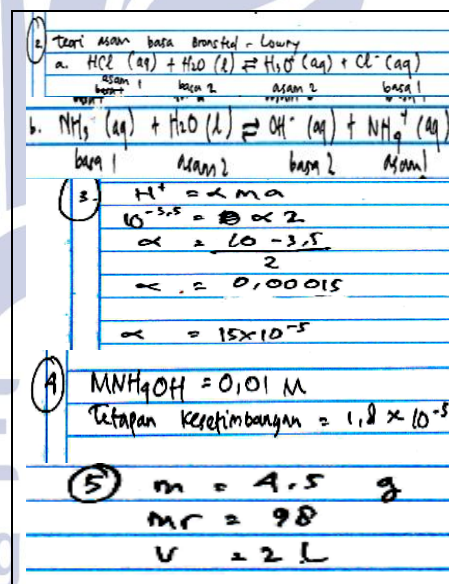 2 teori asam basa bronsted - Lowry
a. HCl (aq) + H2O (l) ⇄ H3O+ (aq) + Cl- (aq)
asam 1 basa 2 asam 2 basa 1
b. NH3 (aq) + H2O (l) ⇄ OH- (aq) + NH4+ (aq)
basa 1 asam 2 basa 2 asam 1
3. H+ = α ma
10-3,5 = α 2
α = 10 -3,5
2
α = 0,00015
α = 15x10-5
4 MNH4OH = 0,01 M
Tetapan kesetimbangan = 1,8 x 10-5
5 m = 4.5 g
mr = 98
V = 2 L